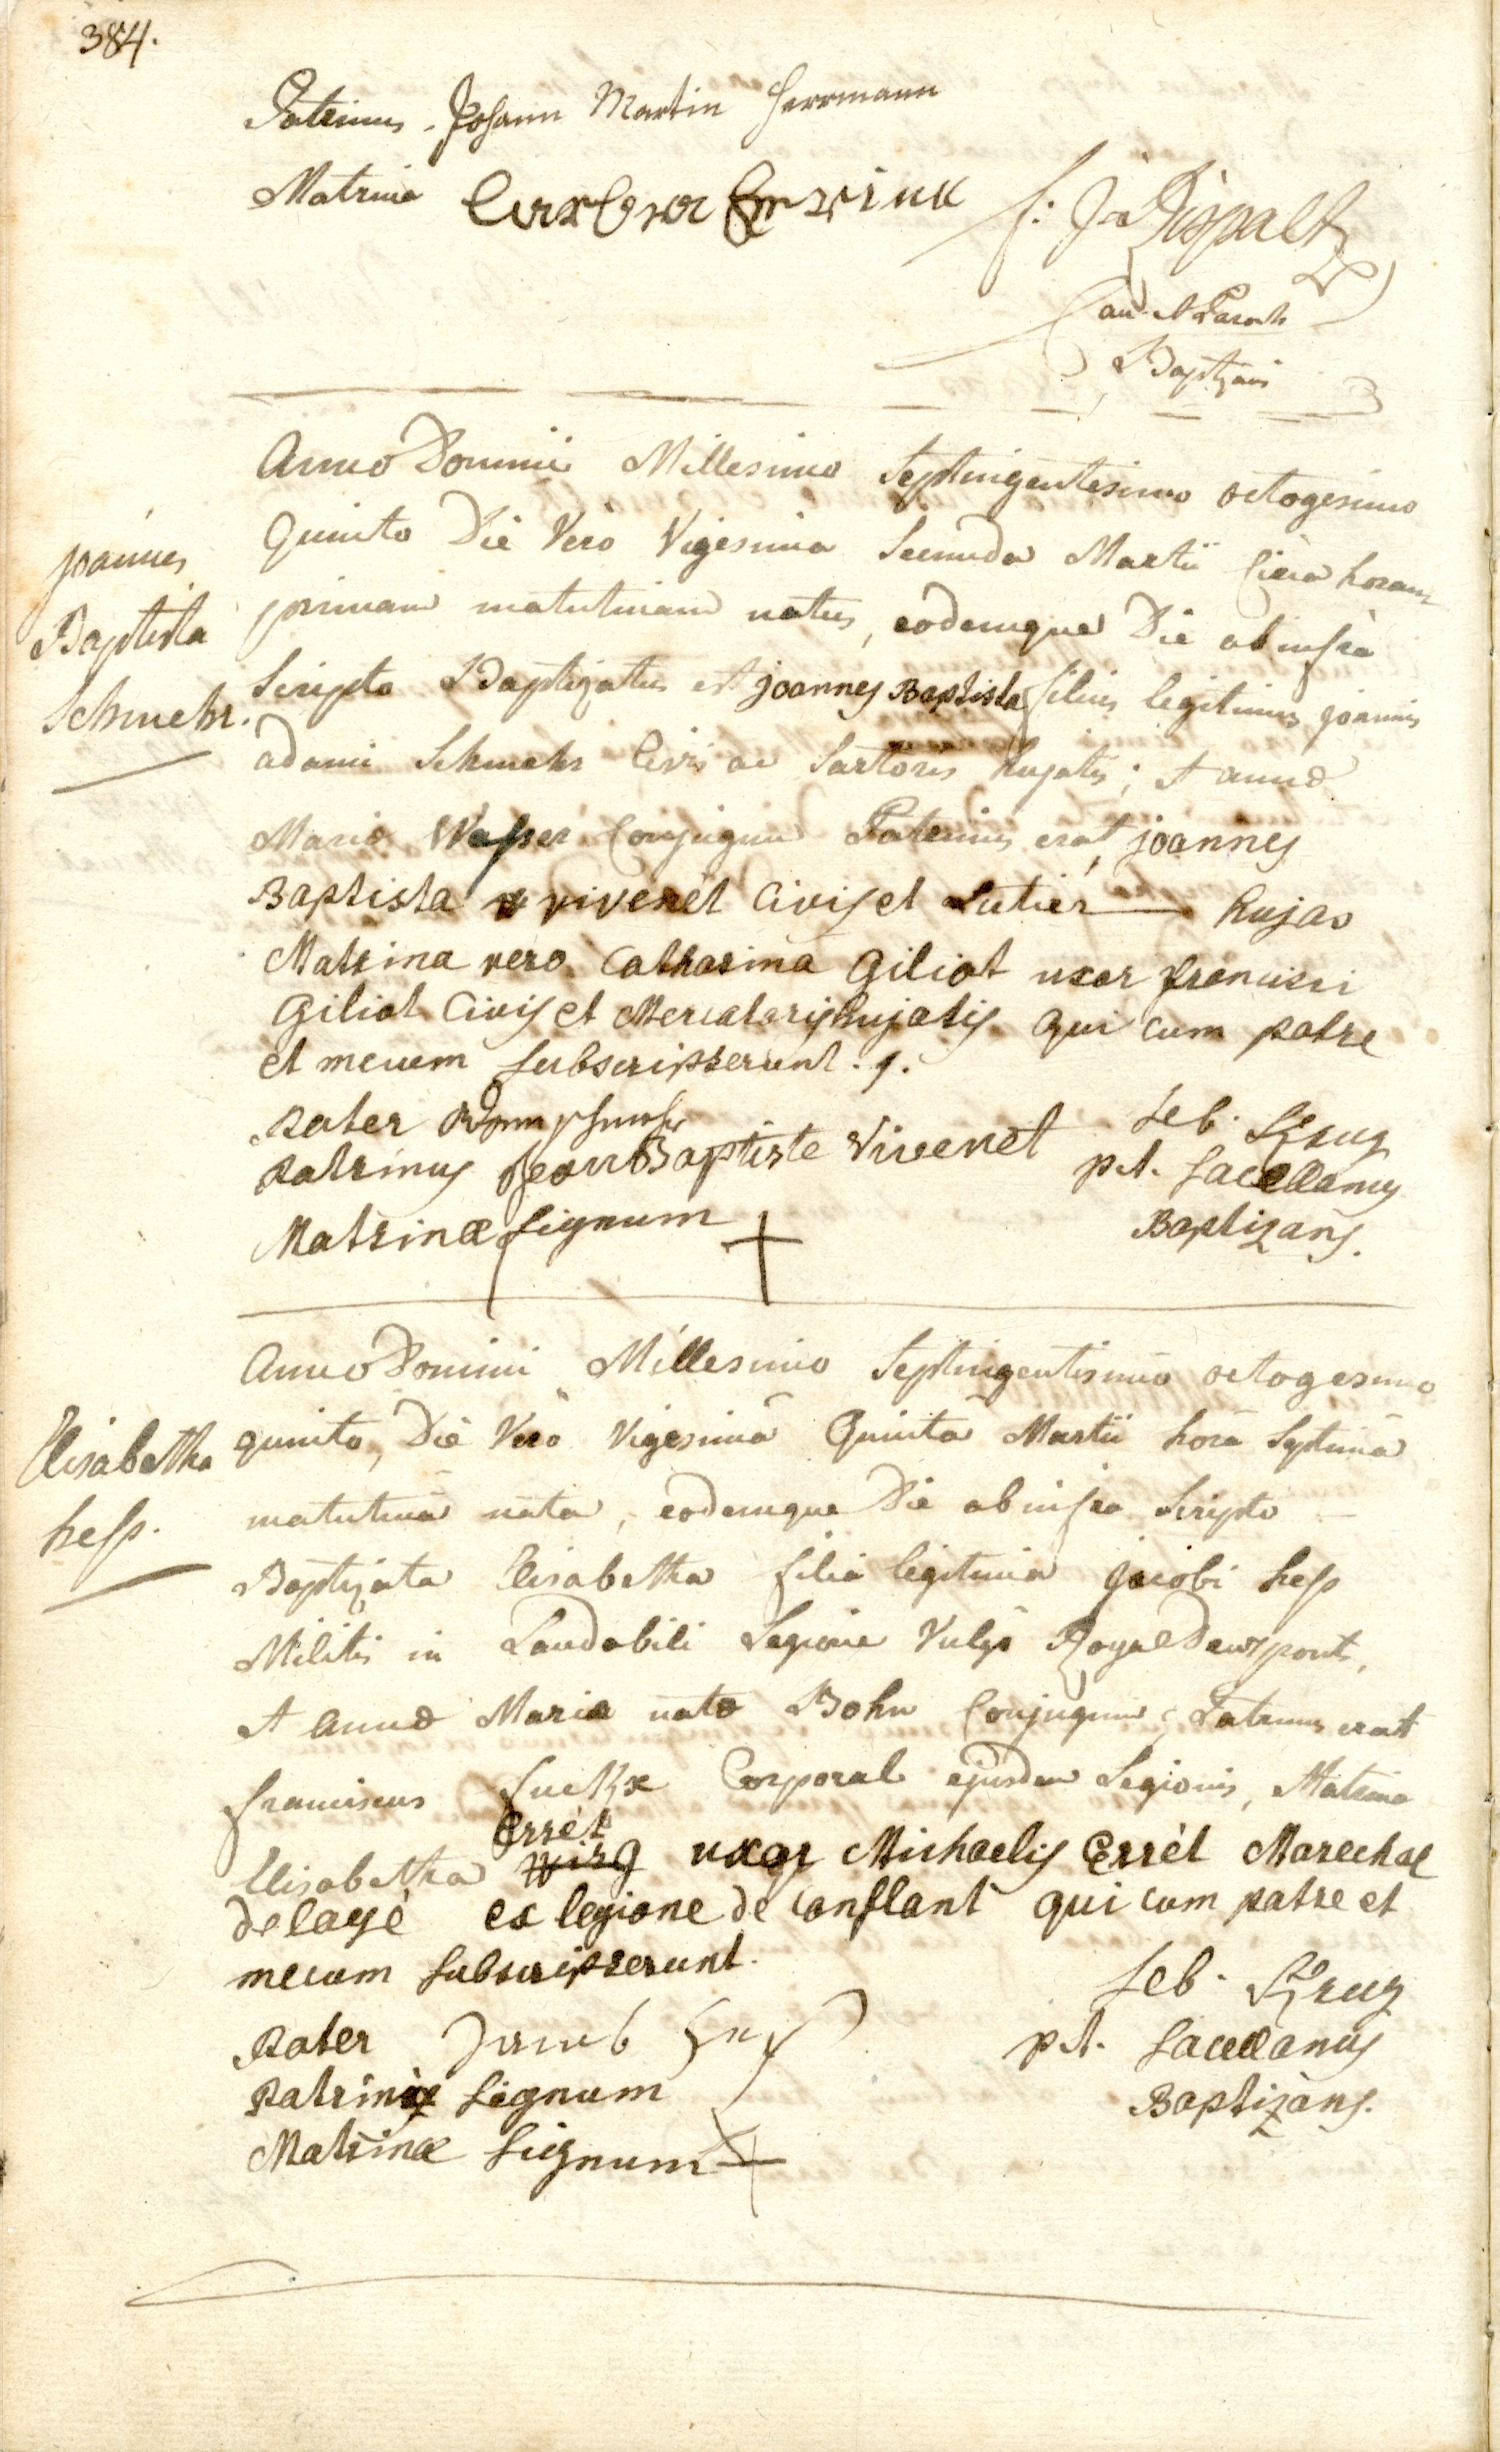 384.
Patrinus Johann Martin Herrmann
Matrina
f: J: Dispalt
Can. et Paroch
Baptizans
Anno Domini Millesimo Septingentesimo octogesimo
Quinto Die Vero Vigesima Secunda Martii Circa horam
Joannes
Baptista
Schmehr.
primam matutinam natus, eodemque Die ab infra
Scripto Baptizatus est joannes Baptista filius legitimus joannis
adami Schmehr Civis ac Sartoris hujatis; et annæ
Mariæ Wasser Conjugum Patrinus erat joannes
Baptista vivenét Civis et Lutiér hujas
Matrina vero Catharina Giliot uxor francisci
Giliot Civis et Mercatoris hujatis qui cum patre
et mecum subscripserunt.
pater
patrinus Jean Baptiste Vivenet
Matrinæ signum +
Seb. Krug
p.t. Sacellanus
Baptizans.
Anno Domini Millesimo Septingentesimo octogesimo
Elisabetha
hess.
quinto, Die Vero Vigesimā Quintā Martii horā Septimā
matutinā nata, eodemque Die ab infra Scripto
Baptizata Elisabetha filia legitima jacobi hess
Militis in Laudabili Legione Vulgo Royal Deuxponts,
et annæ Mariæ natæ Bohn Conjugum, Patrinus erat
franciscus Corporal ejusdem Legionis, Matrina
Errét
Elisabetha uxor Michaelis Errét Marechal
delogé ex legione de conflant qui cum patre et
mecum subscripserunt.
pater Jacob Hess
patrini signum
Matrinæ signum +
Seb. Krug
p.t. Sacellanus
Baptizans.